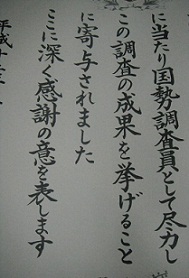 に当たり国勢調査員として尽力し
この調査の成果を挙げること
に寄与されました
ここに深く感謝の意を表します
平成十